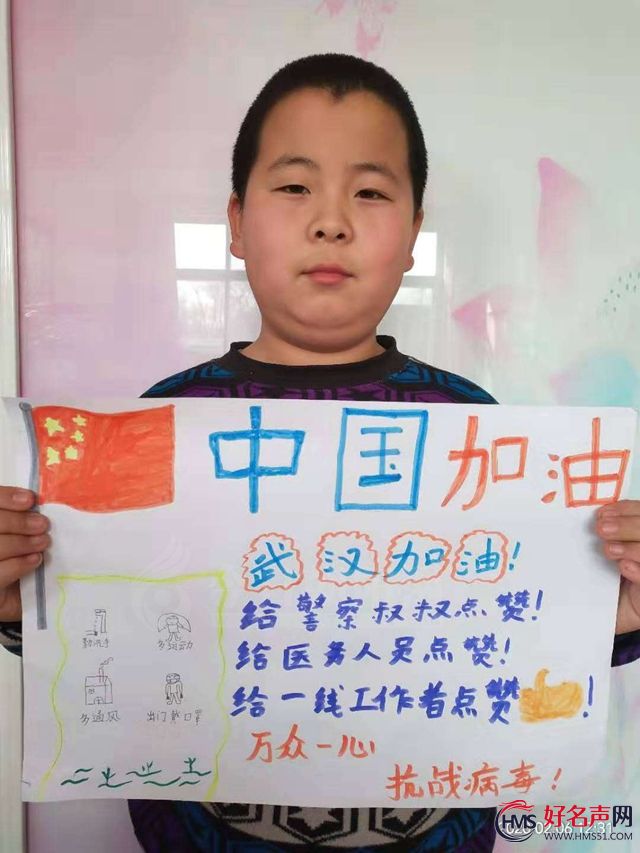 中国加油
武汉加油!
给警察叔叔点赞!
给医务人员点赞!
给一线工作者点赞!
勤洗手
多运动
多通风
出门戴口罩
万众一心
抗战病毒!
2020 02 06 12:31
HMS 好名声网
WWW.HMS51.COM